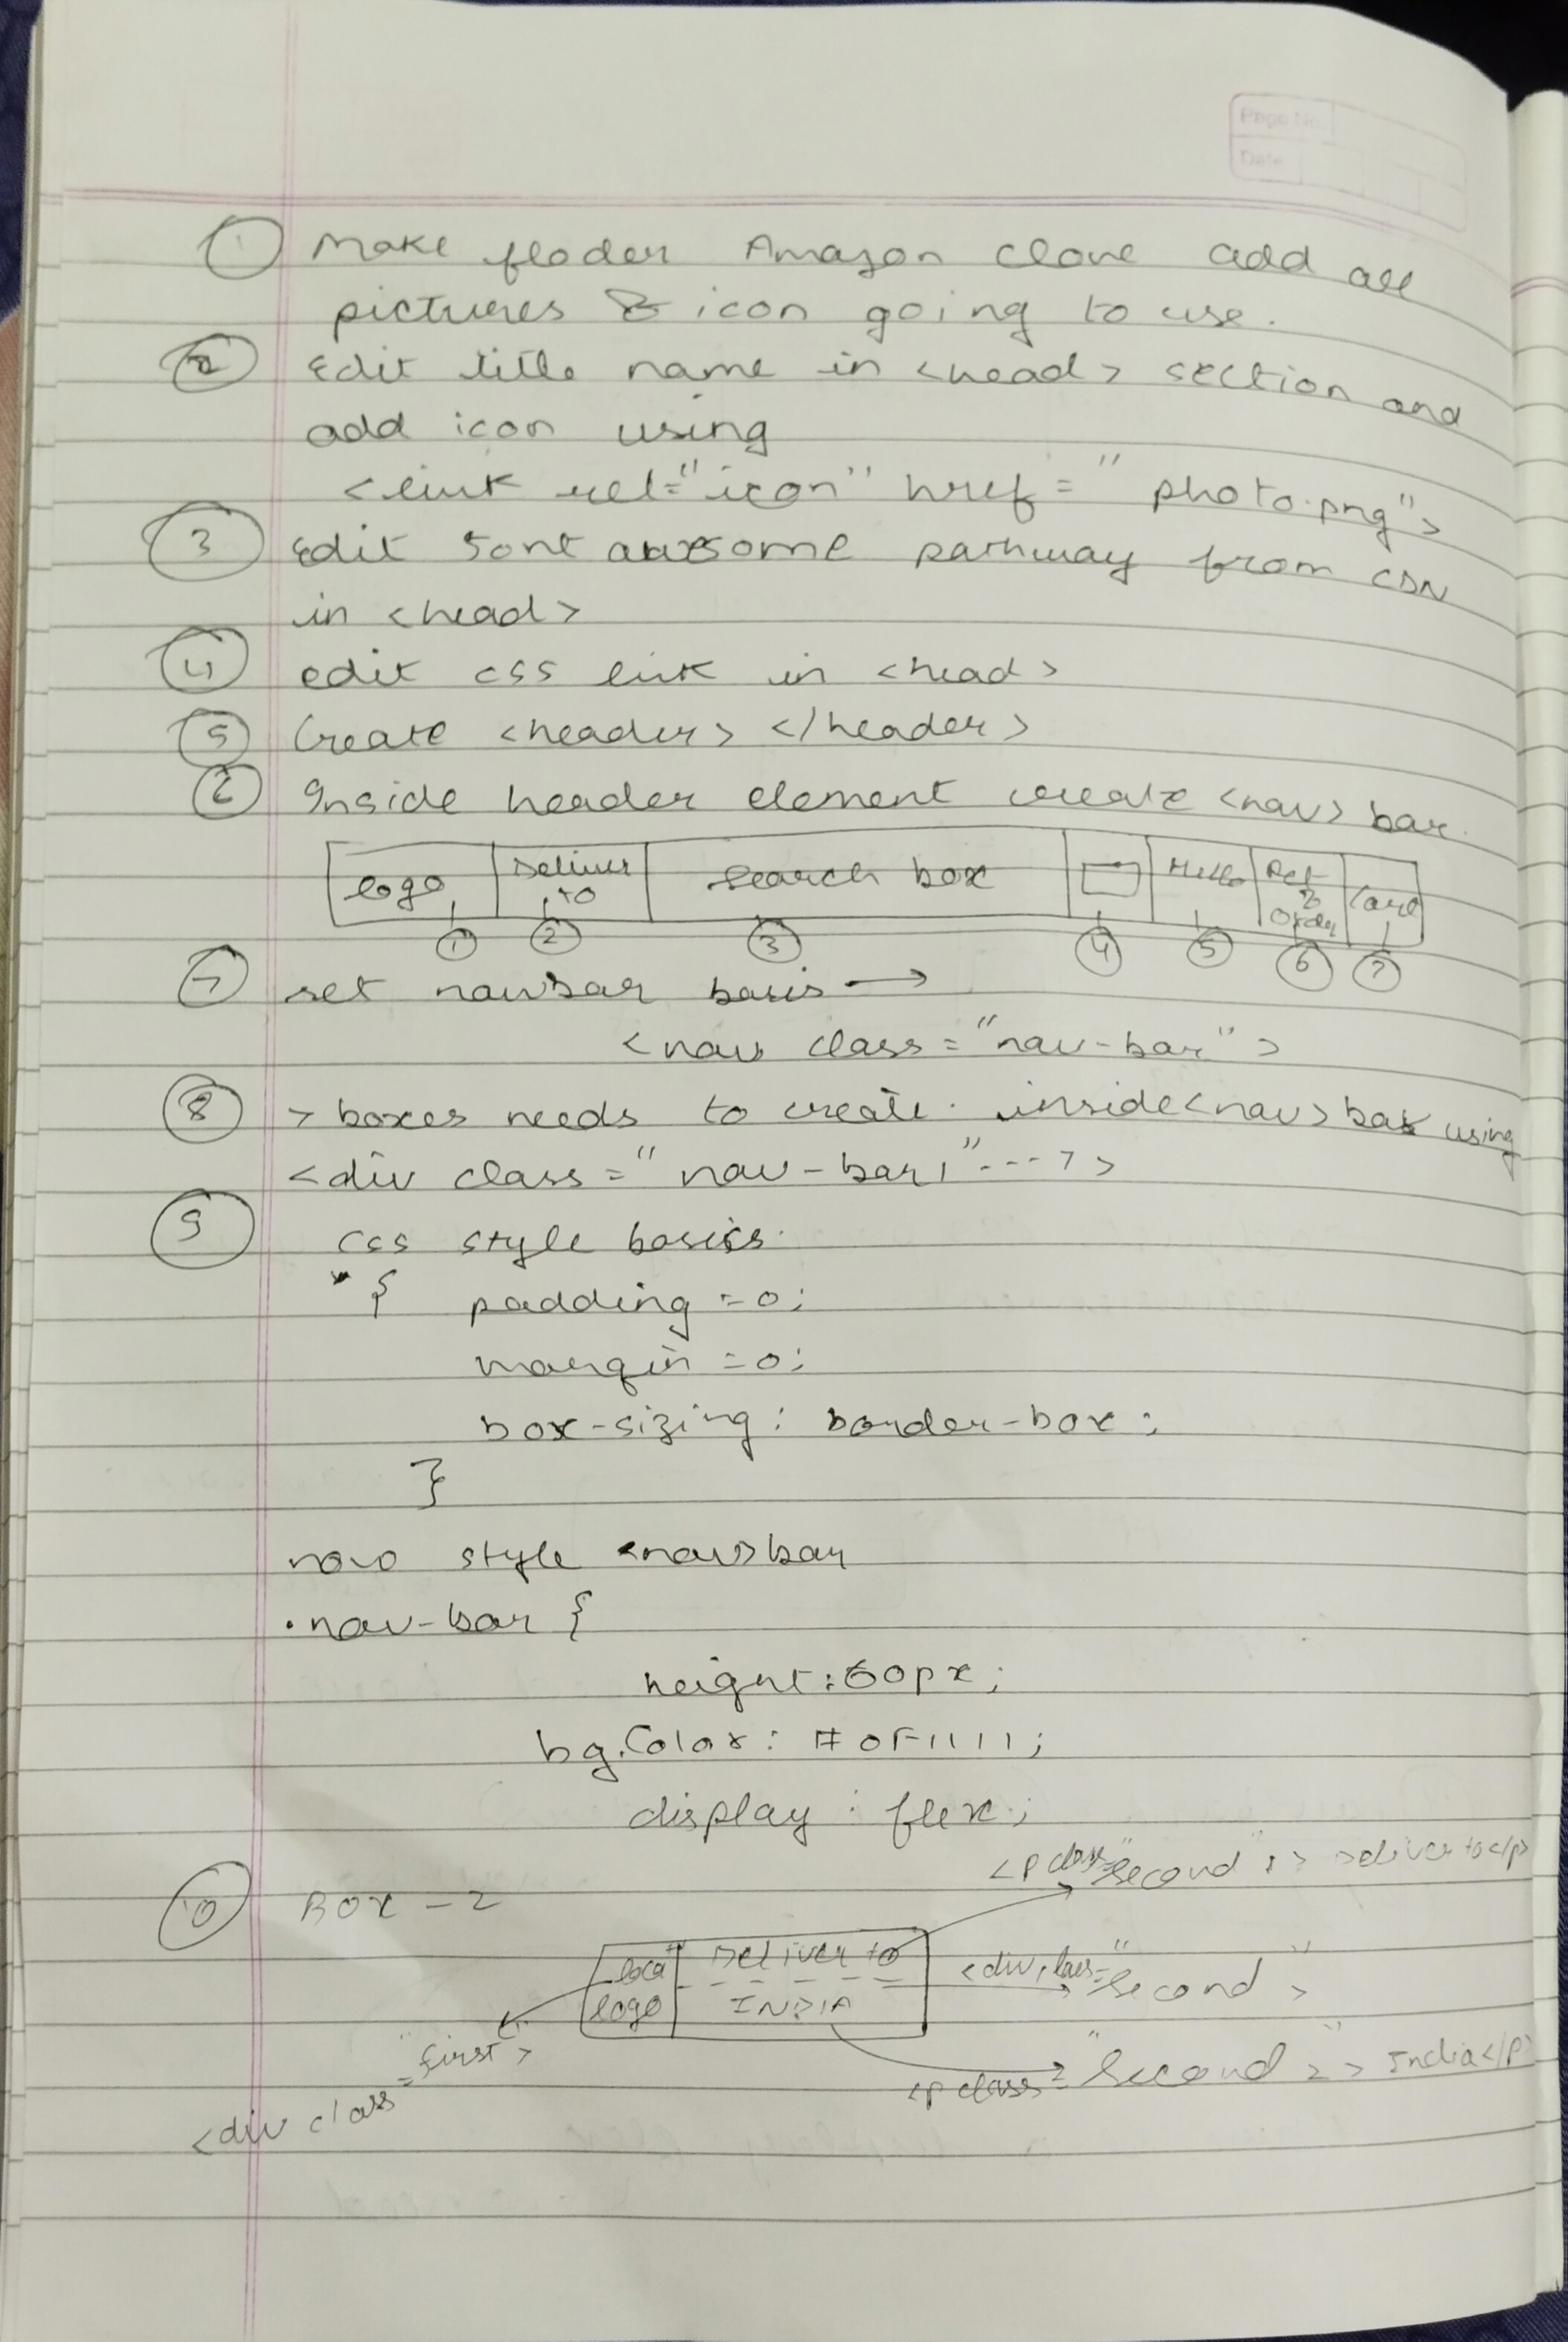 Page No.
Date
① Make floder Amazon clone add all
pictures & icon going to use.
② Edit title name in <head> section and
add icon using
<link rel="icon" href=" photo.png">
③ Edit font awesome pathway from CDN
in <head>
④ edit css link in <head>
⑤ Create <header> </header>
⑥ Inside header element create <nav> bar.
logo Deliver to search box Hello Ret & Order Card
① ② ③ ④ ⑤ ⑥ ⑦
⑦ set navbar basis →
<nav class="nav-bar">
⑧ 7 boxes needs to create. inside <nav> bar using
<div class="nav-bar1"---7>
⑨ css style basics.
*{ padding =0;
margin =0;
box-sizing: border-box;
}
now style <nav> bar
.nav-bar {
height:60px;
bg.Color: #0F1111;
display: flex;
⑩ Box - 2
<p class="second 1"> Deliver to </p>
loca logo Deliver to INDIA
<div class="second">
<div class="first">
<p class="second 2"> India </p>